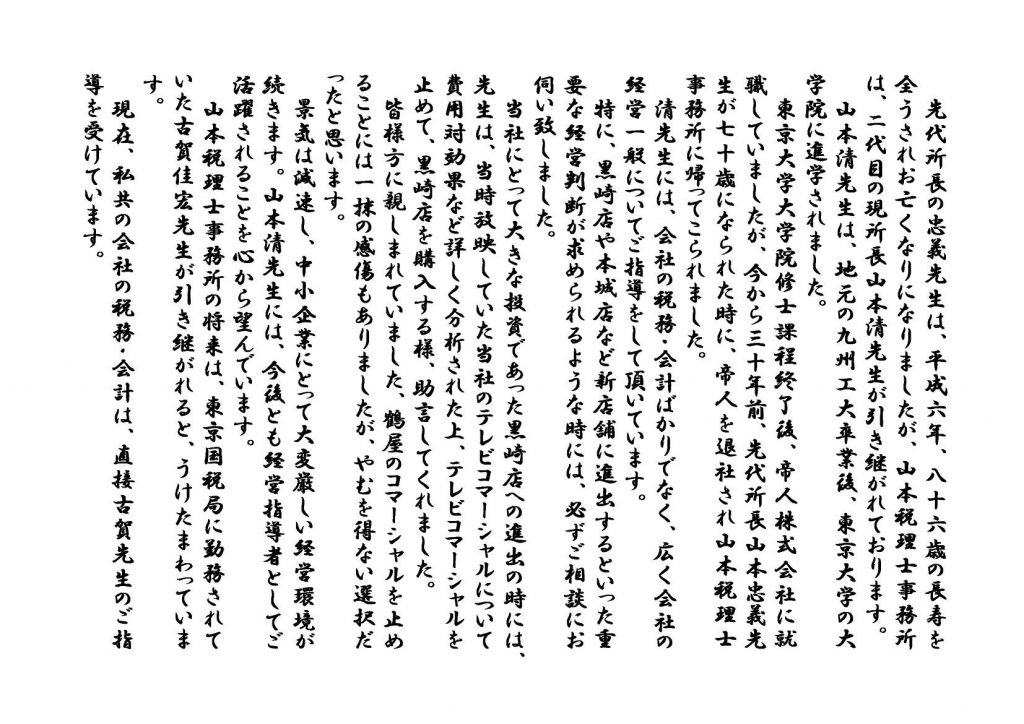 先代所長の忠義先生は、平成六年、八十六歳の長寿を
全うされお亡くなりになりましたが、山本税理士事務所
は、二代目の現所長山本清先生が引き継がれております。
山本清先生は、地元の九州工大卒業後、東京大学の大
学院に進学されました。
東京大学大学院修士課程終了後、帝人株式会社に就
職していましたが、今から三十年前、先代所長山本忠義先
生が七十歳になられた時に、帝人を退社され山本税理士
事務所に帰ってこられました。
清先生には、会社の税務・会計ばかりでなく、広く会社の
経営一般についてご指導をして頂いています。
特に、黒崎店や本城店など新店舗に進出するといった重
要な経営判断が求められるような時には、必ずご相談にお
伺い致しました。
当社にとって大きな投資であった黒崎店への進出の時には、
先生は、当時放映していた当社のテレビコマーシャルについて
費用対効果など詳しく分析された上、テレビコマーシャルを
止めて、黒崎店を購入する様、助言してくれました。
皆様方に親しまれていました、鶴屋のコマーシャルを止め
ることには一抹の感傷もありましたが、やむを得ない選択だ
ったと思います。
景気は減速し、中小企業にとって大変厳しい経営環境が
続きます。山本清先生には、今後とも経営指導者としてご
活躍されることを心から望んでいます。
山本税理士事務所の将来は、東京国税局に勤務されて
いた古賀佳宏先生が引き継がれると、うけたまわっていま
す。
現在、私共の会社の税務・会計は、直接古賀先生のご指
導を受けています。